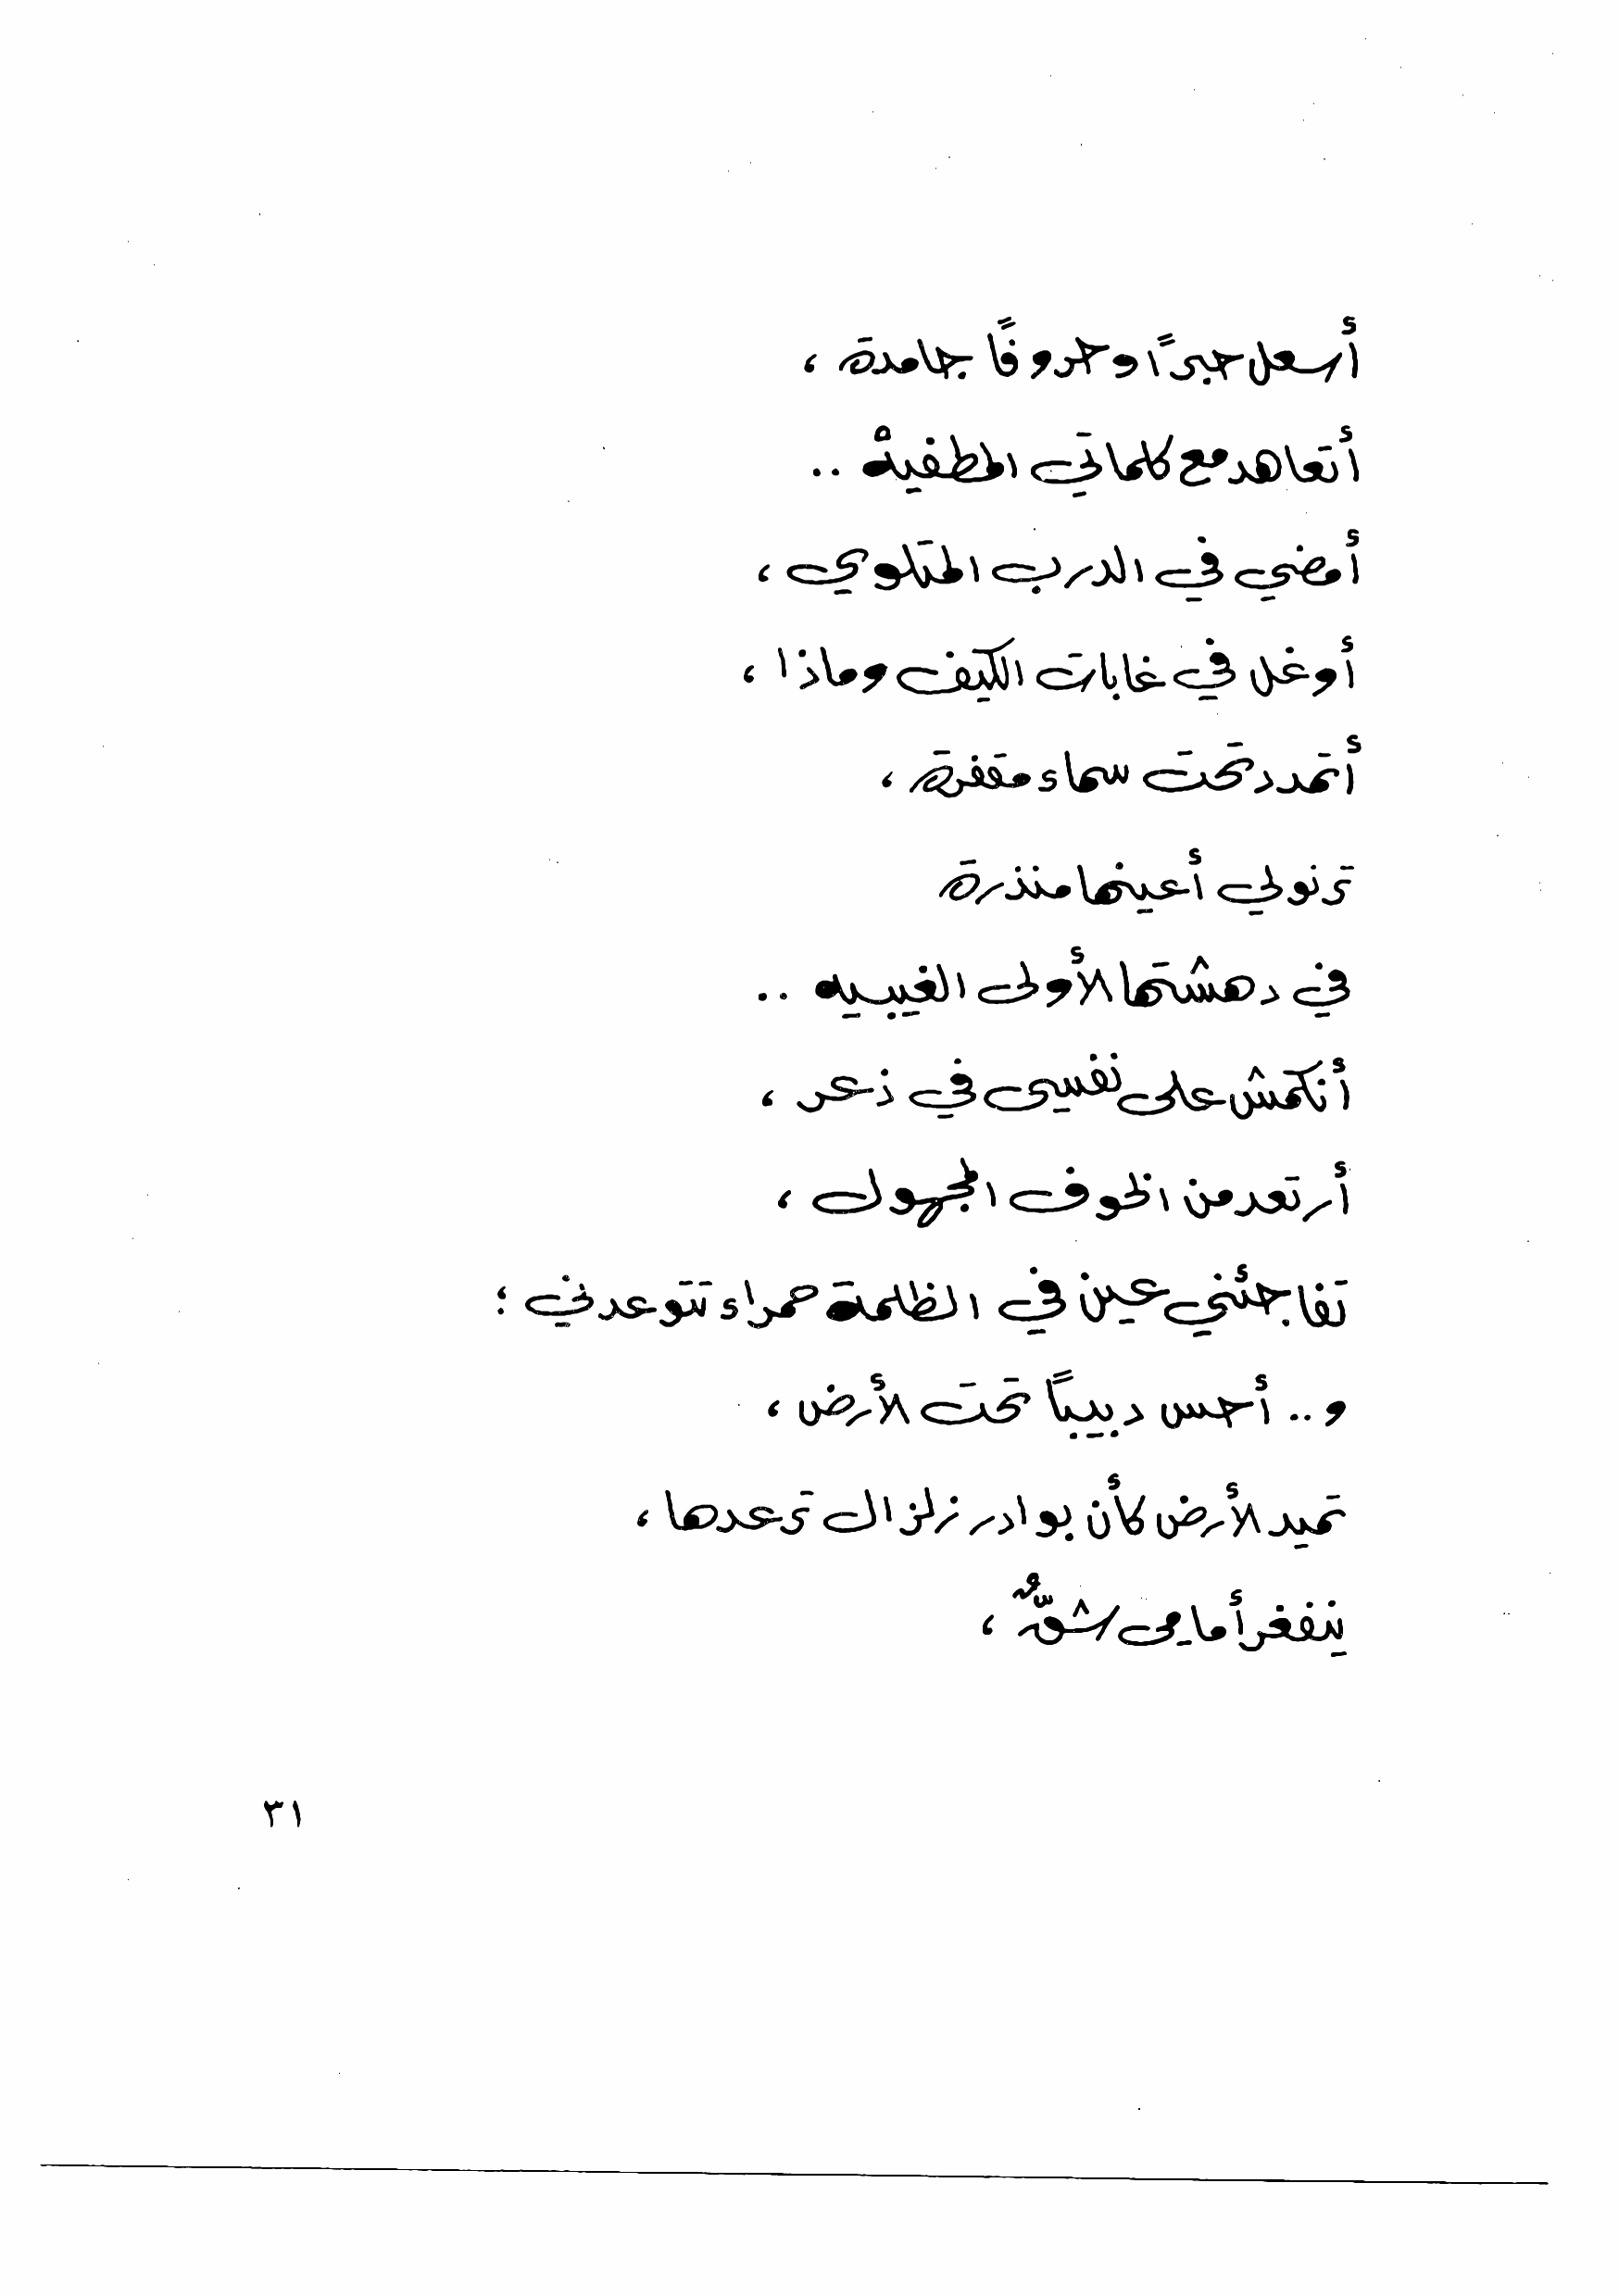 أسعل حبرًا وحروفًا جامدة ،
أتعاهد مع كلماتي المطفيهْ ..
أمضي في الدرب المتلوي ،
أوغل في غابات الكيف وماذا ،
أتمدد تحت سماء مقفرة ،
ترنو لي أعينها منذرة
في دهشتها الأولى الغيبيه ..
أنكمش على نفسي في ذعر ،
أرتعد من الخوف المجهول ،
تفاجئني عين في الظلمة حمراء تتوعدني ؛
و .. أحس دبيبًا تحت الأرض ،
تميد الأرض كأن بوادر زلزال ترعدها ،
ينفغر أمامي شقٌّ ،
٣١